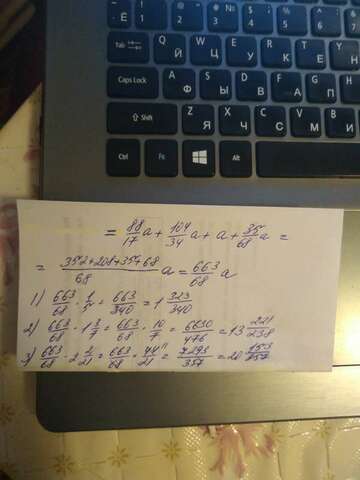 Tab Й Ц У К Е
Caps Lock Ф Ы В А П
Shift Я Ч С М И
Ctrl Fn Alt
= 88/17 a + 104/34 a + a + 35/68 a =
= 352+208+35+68/68 a = 663/68 a
1) 663/68 · 1/5 = 663/340 = 1 323/340
2) 663/68 · 1 3/7 = 663/68 · 10/7 = 6630/476 = 13 221/238
3) 663/68 · 2 2/21 = 663/68 · 44 11/21 = 7293/357 = 20 153/357